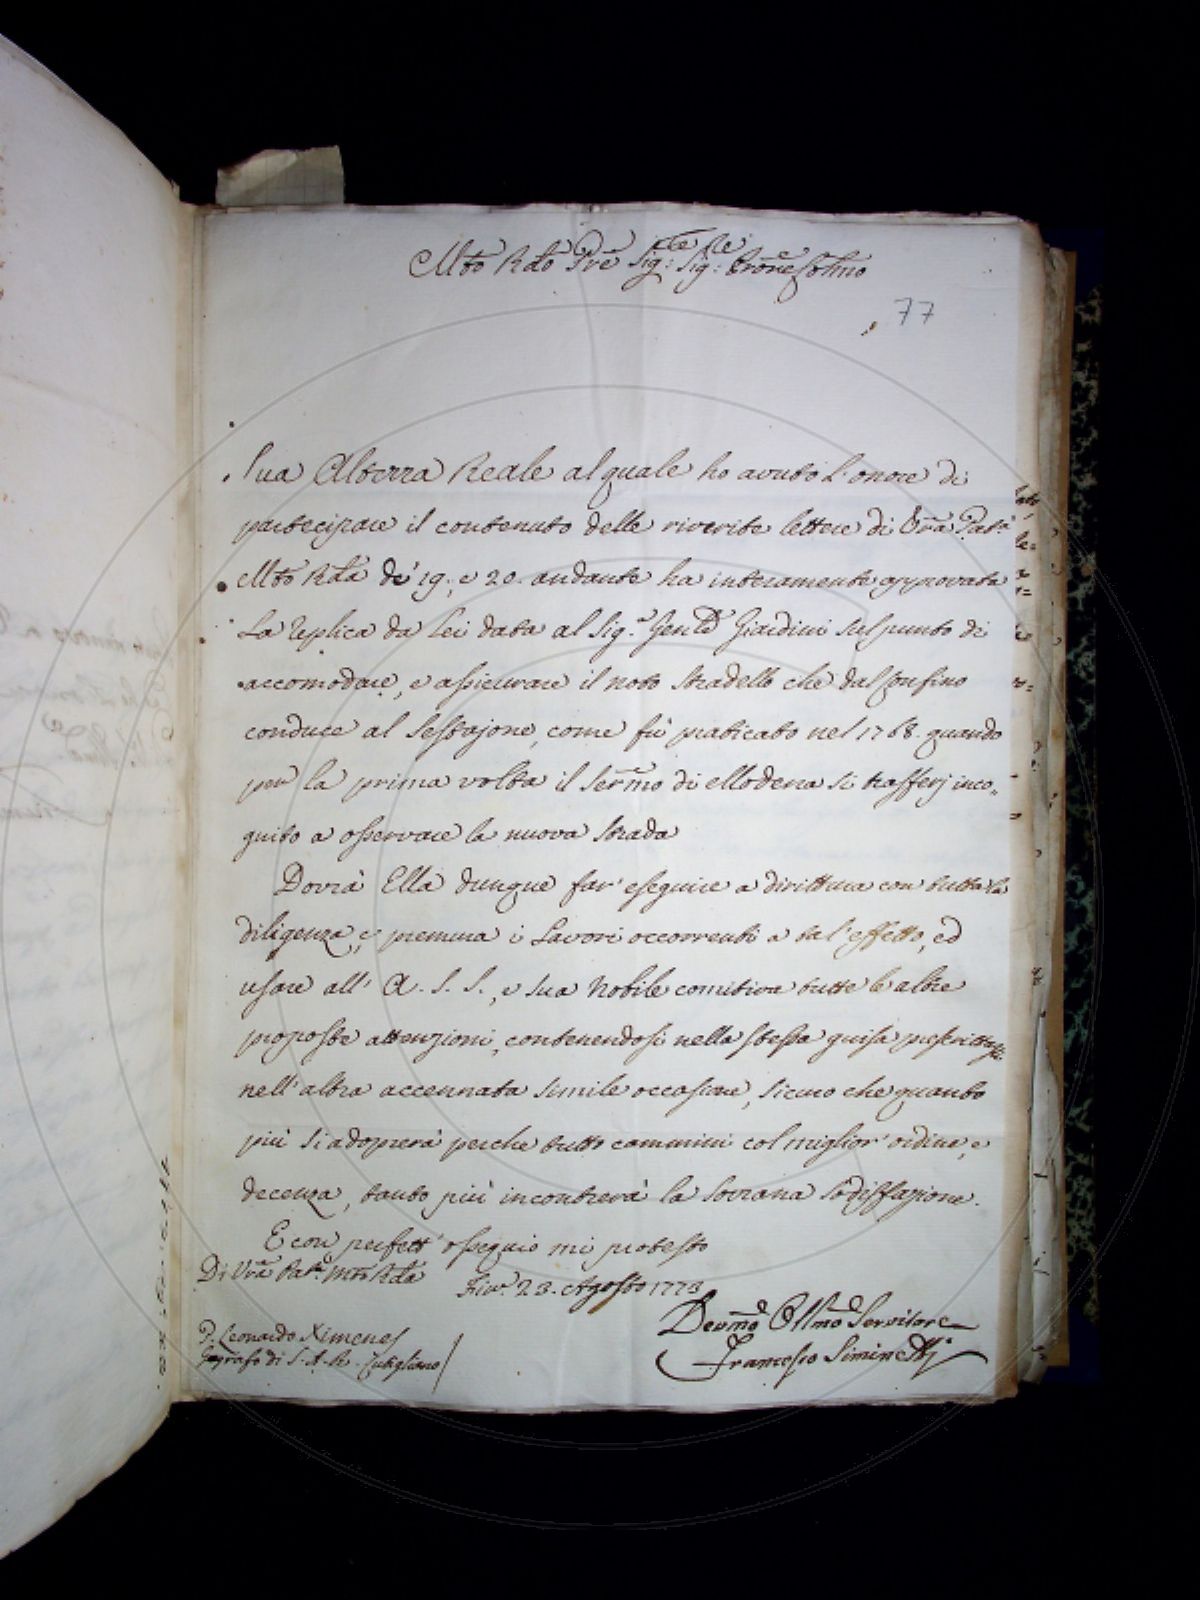 Mto Rdo Pre Sig: Sig: Prone Colmo
77
Sua Altezza Reale al quale ho avuto l'onore di
partecipare il contenuto delle riverite lettere di Vra Patà
Mto Rda de' 19., e 20. andante ha interamente approvata
la replica da Lei data al Sig.e Genle Giardini sul punto di
accomodare, e assicurare il noto stradello che dal Confino
conduce al Sestajone, come fù praticato nel 1768. quando
per la prima volta il Sermo di Modena si trasferj inco=
gnito a osservare la nuova strada
Dovrà Ella dunque far' eseguire a dirittura con tutta la
diligenza, e premura i Lavori occorrenti a tal'effetto, ed
usare all' A. S. S., e sua Nobile comitiva tutte le altre
proposte attenzioni, contenendosi nella stessa guisa prescrittasi
nell'altra accennata simile occasione, sicuro che quanto
più si adoprerà perche tutto cammini col miglior' ordine, e
decenza, tanto più incontrerà la Sovrana sodisfazione.
E con perfett' ossequio mi protesto
Di Vra Patà Mto Rda
Firē. 23. Agosto 1773
P. Leonardo Ximenes
Geografo di S. A. R. Cutigliano
Devmo Obbmo Servitore
Francesco Siminetti